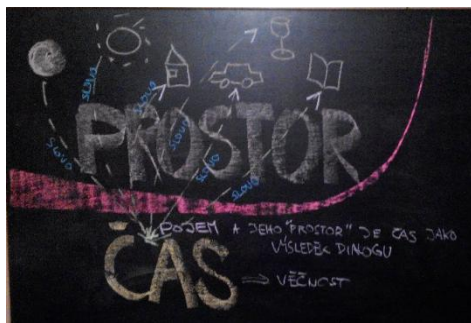 SLOVO
SLOVO
SLOVO
SLOVO
SLOVO
SLOVO
PROSTOR
POJEM A JEHO "PROSTOR" JE ČAS JAKO
VÝSLEDEK DIALOGU
ČAS => VĚČNOST